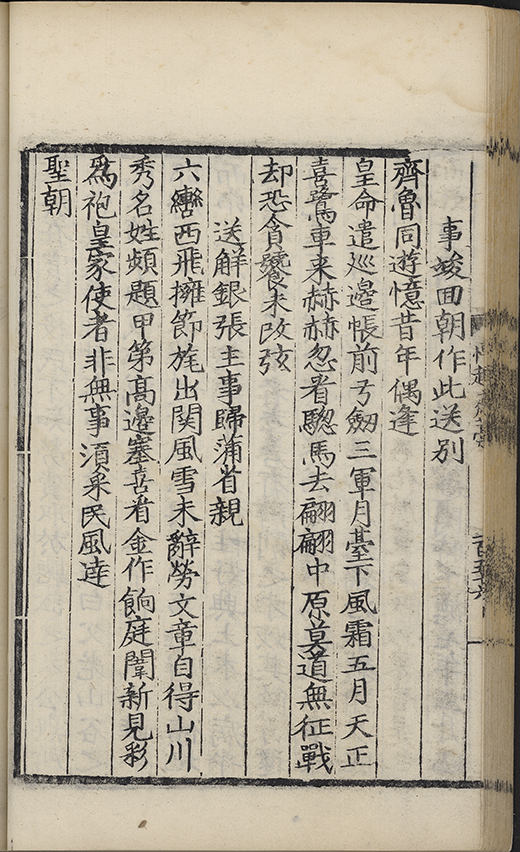 事竣回朝作此送别
齊魯同遊憶昔年偶逢
皇命遣巡邊帳前弓劒三軍月臺下風霜五月天正
喜鷺車来赫赫忽看驄馬去翩翩中原莫道無征戰
却恐貪饕未改弦
送解銀張主事歸蒲省親
六轡西飛擁節旄出関風雪未辭勞文章自得山川
秀名姓頻題甲第高邊塞喜看金作餉庭闈新見彩
為袍皇家使者非無事湏采民風達
聖朝